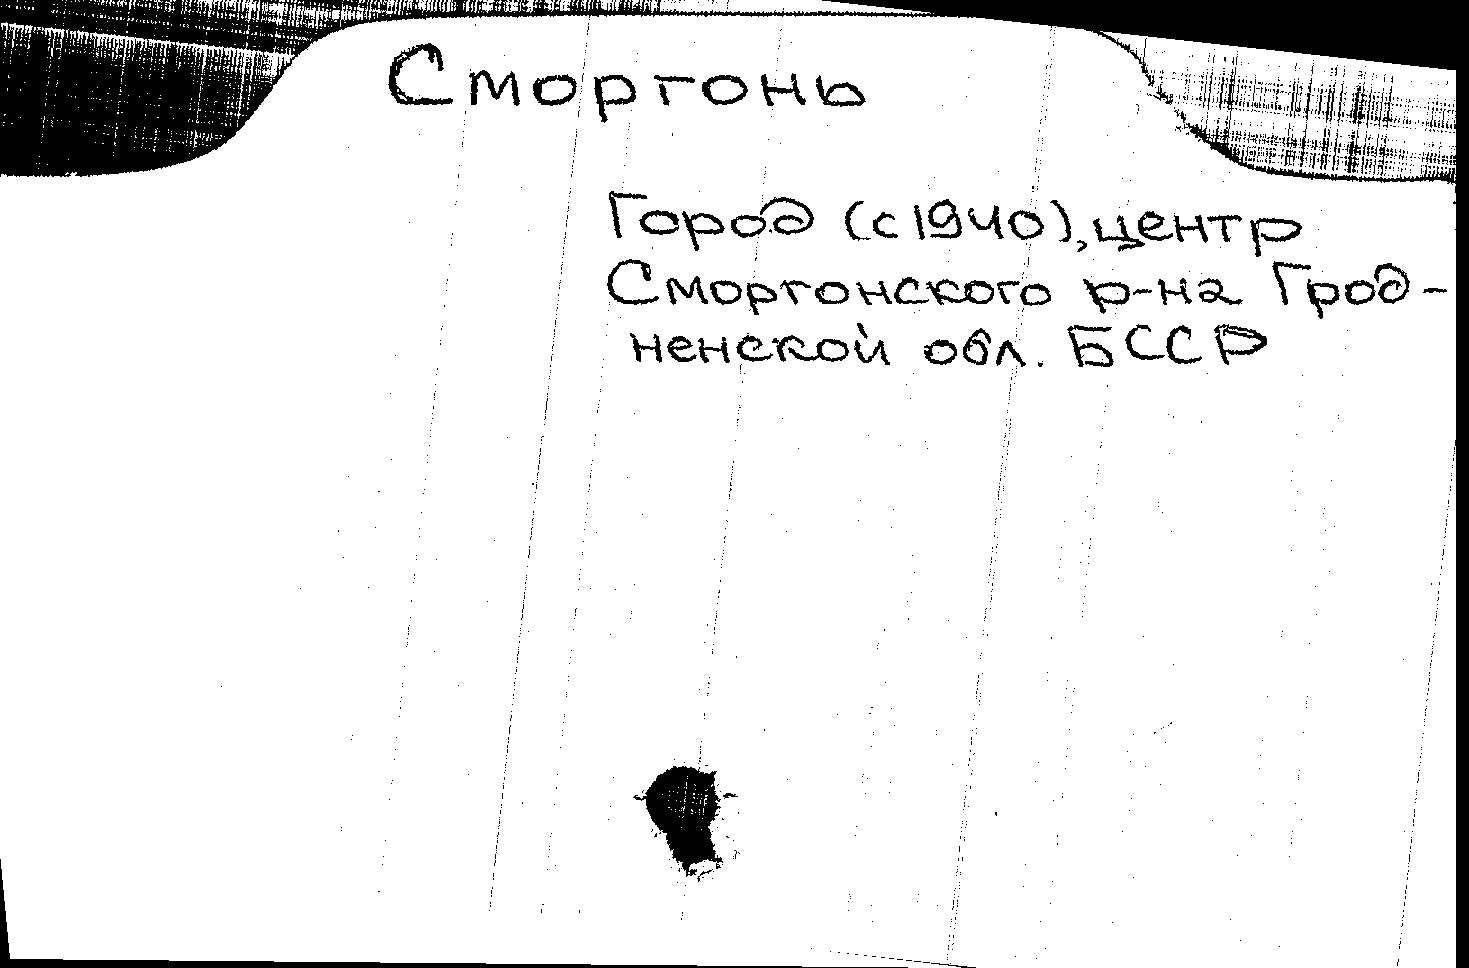 Сморгонь
Город (с 1940), центр
Сморгонского р-на Грод-
ненской обл. БССР